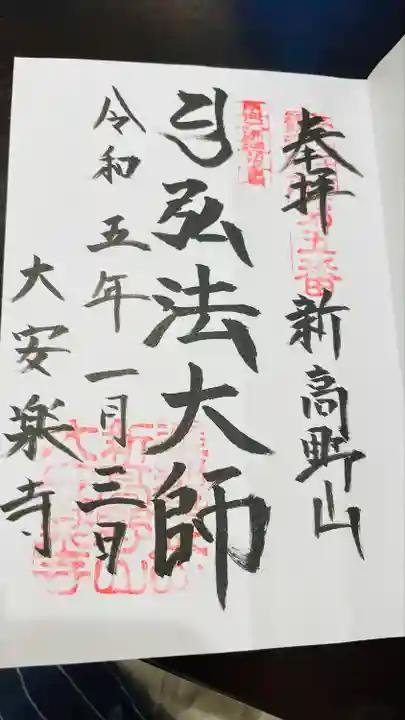 奉拝 新高野山
弘法大師
令和五年一月三日
大安楽寺
第五番